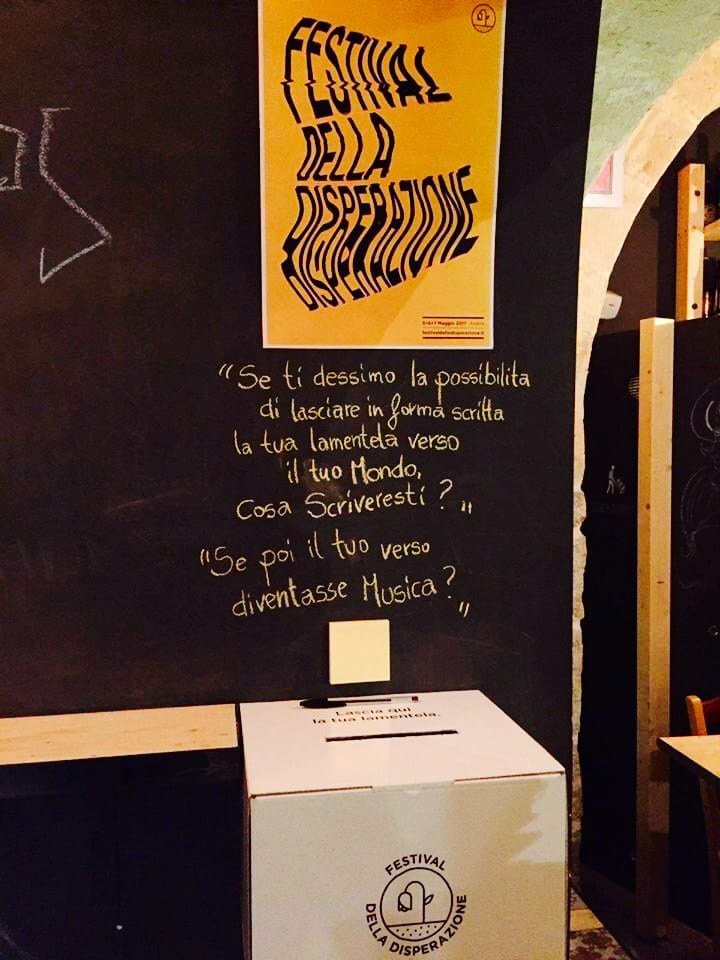 FESTIVAL
DELLA
DISPERAZIONE
5+6+7 Maggio 2017 - Andria
festivaldelladisperazione.it
"Se ti dessimo la possibilita
di lasciare in forma scritta
la tua lamentela verso
il tuo Mondo,
Cosa Scriveresti?"
"Se poi il tuo verso
diventasse Musica?"
Lascia qui
la tua lamentela.
FESTIVAL
DELLA DISPERAZIONE